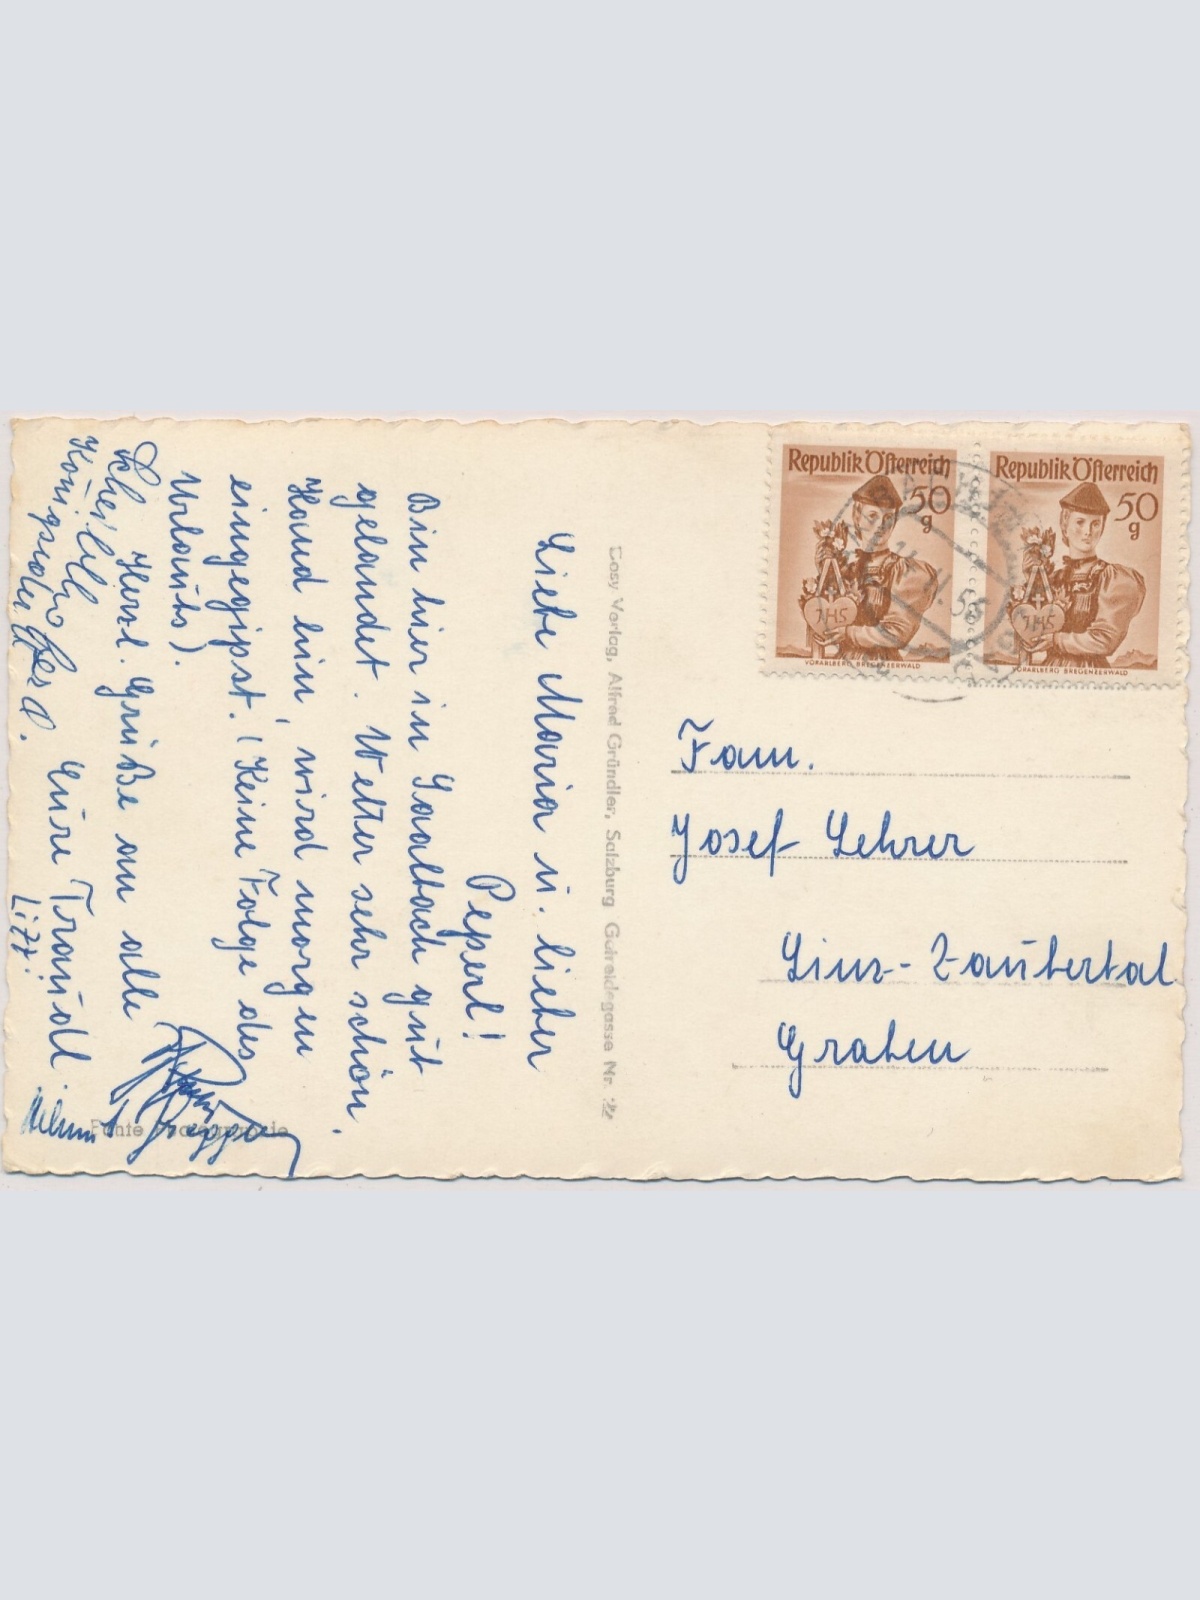 Liebe Maria u. lieber
Peperl!
Bin hier in Saalbach gut
gelandet. Wetter sehr schön.
Hand hin, wird morgen
eingegipst. (Keine Folge des
Urlaubs).
Herzl. Grüße an alle
Eure Traudl.
Lizzi
Helmut
Echte Photographie
Dosy Verlag, Alfred Gründler, Salzburg Getreidegasse Nr. 22
Republik Österreich
50
g
JHS
VORARLBERG BREGENZERWALD
Republik Österreich
50
g
JHS
VORARLBERG BREGENZERWALD
Fam.
Josef Lehrer
Linz-Zaubertal
Graben